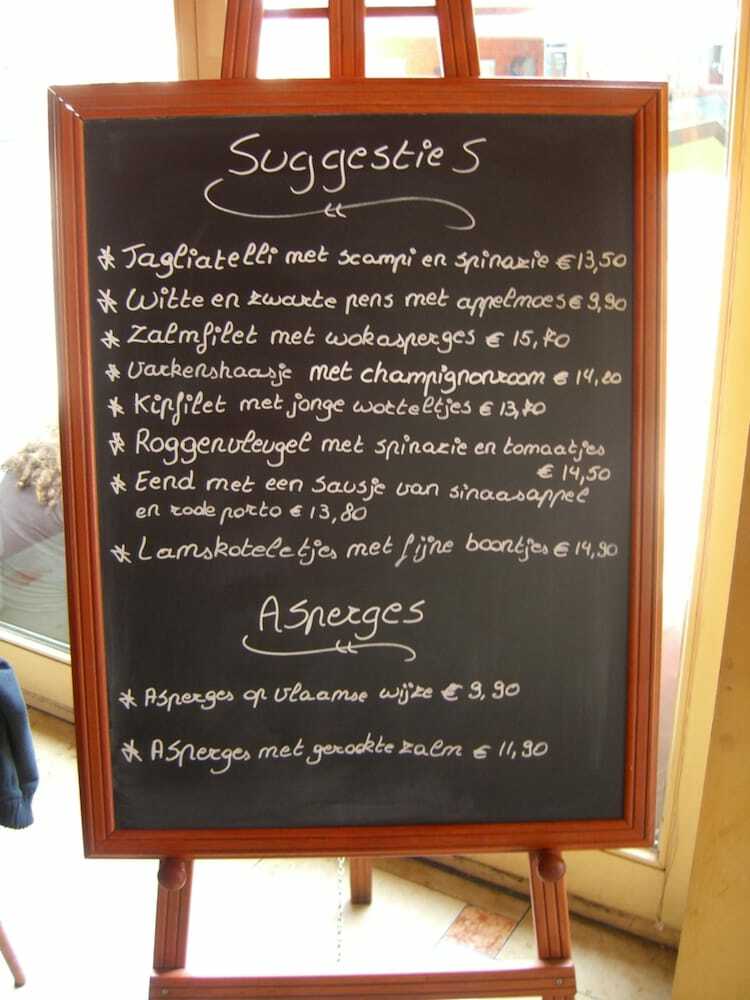 Suggesties
* Tagliatelli met scampi en spinazie € 13,50
* Witte en zwarte pens met appelmoes € 9,90
* Zalmfilet met wokasperges € 15,70
* Varkenshaasje met champignonroom € 14,20
* Kipfilet met jonge worteltjes € 13,70
* Roggenvleugel met spinazie en tomaatjes
€ 14,50
* Eend met een sausje van sinaasappel
en rode porto € 13,80
* Lamskoteletjes met fijne boontjes € 14,90
Asperges
* Asperges op vlaamse wijze € 9,90
* Asperges met gerookte zalm € 11,90